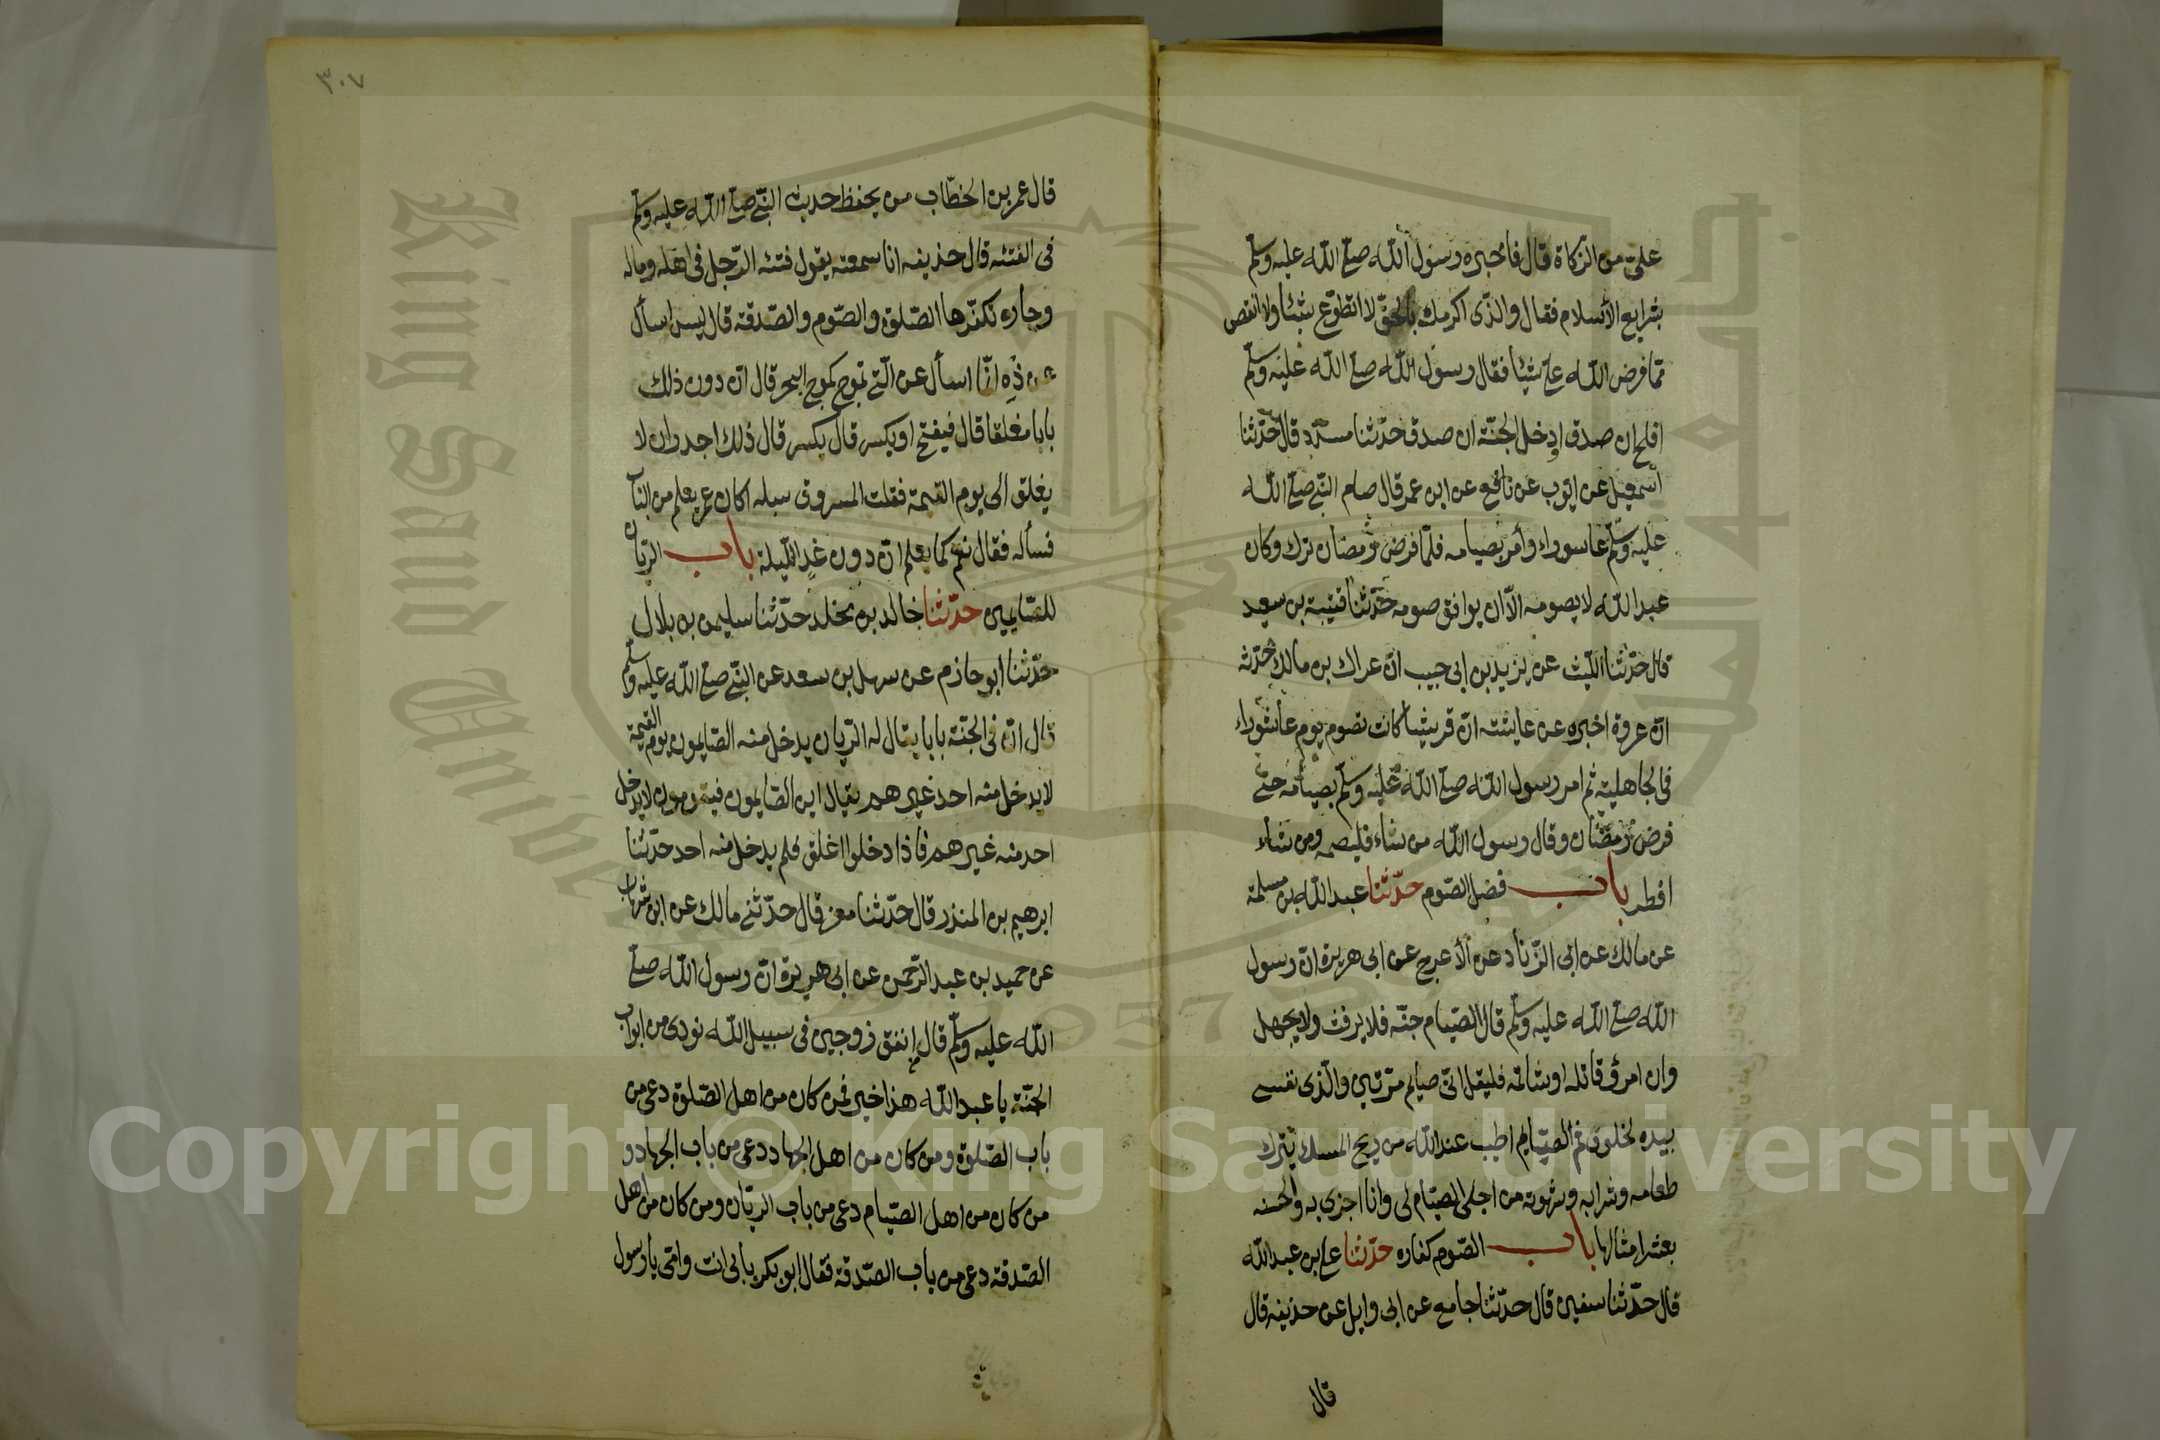 على من الزكاة قال فاخبره رسول الله صلى الله عليه وسلم
بشرايع الاسلام فقال والذى اكرمك بالحق لا اتطوع شيئا ولا انقص
مما فرض الله على شيئا فقال رسول الله صلى الله عليه وسلم
افلح ان صدق ادخل الجنة ان صدق حدثنا مسدد قال حدثنا
اسمعيل عن ايوب عن نافع عن ابن عمر قال صام النبى صلى الله
عليه وسلم عاشوراء وأمر بصيامه فلما فرض رمضان ترك وكان
عبد الله لا يصومه الا ان يوافق صومه حدثنا قتيبة بن سعيد
قال حدثنا الليث عن يزيد بن ابى حبيب ان عراك بن مالك حدثه
ان عروة اخبره عن عايشة ان قريشا كانت تصوم يوم عاشوراء
فى الجاهلية ثم امر رسول الله صلى الله عليه وسلم بصيامه حتى
فرض رمضان وقال رسول الله من شاء فليصمه ومن شاء
افطر باب فضل الصوم حدثنا عبد الله بن مسلمة
عن مالك عن ابى الزناد عن الأعرج عن ابى هريرة ان رسول
الله صلى الله عليه وسلم قال الصيام جنة فلا يرفث ولا يجهل
وان امرؤ قاتله او شاتمه فليقل انى صايم مرتين والذى نفسى
بيده لخلوف فم الصايم اطيب عند الله من ريح المسك يترك
طعامه وشرابه وشهوته من اجلى الصيام لى وانا اجزى به والحسنه
بعشر امثالها باب الصوم كفاره حدثنا على بن عبد الله
قال حدثنا سفين قال حدثنا جامع عن ابى وايل عن حذيفه قال
قال
٣٠٧
قال عمر بن الخطاب من يحفظ حديث النبى صلى الله عليه وسلم
فى الفتنه قال حذيفه انا سمعته يقول فتنه الرجل فى اهله وماله
وجاره تكفرها الصلوة والصوم والصدقة قال ليس اسأل
عن ذه انما اسأل عن التى تموج كموج البحر قال ان دون ذلك
بابا مغلقا قال فيفتح او يكسر قال يكسر قال ذلك اجدر ان لا
يغلق الى يوم القيمة فقلت المسروق سله اكان عمر يعلم من الباب
فسأله فقال نعم كما يعلم ان دون غد الليلة باب الريان
للصايمين حدثنا خالد بن مخلد حدثنا سليمن بن بلال
حدثنا ابو حازم عن سهل بن سعد عن النبى صلى الله عليه وسلم
قال ان فى الجنة بابا يقال له الريان يدخل منه الصايمون يوم القيمة
لا يدخل منه احد غيرهم يقال اين الصايمون فيقومون لا يدخل
احد منه غيرهم فاذا دخلوا اغلق فلم يدخل منه احد حدثنا
ابرهيم بن المنذر قال حدثنا معن قال حدثنى مالك عن ابن شهاب
عن حميد بن عبد الرحمن عن ابى هريرة ان رسول الله صلى
الله عليه وسلم قال انفق زوجين فى سبيل الله نودى من ابواب
الجنة يا عبد الله هذا خير فمن كان من اهل الصلوة دعى من
باب الصلوة ومن كان من اهل الجهاد دعى من باب الجهاد و
من كان من اهل الصيام دعى من باب الريان ومن كان من اهل
الصدقه دعى من باب الصدقة فقال ابو بكر بابى انت وامى يا رسول
Copyright © King Saud University
King Saud University
1957